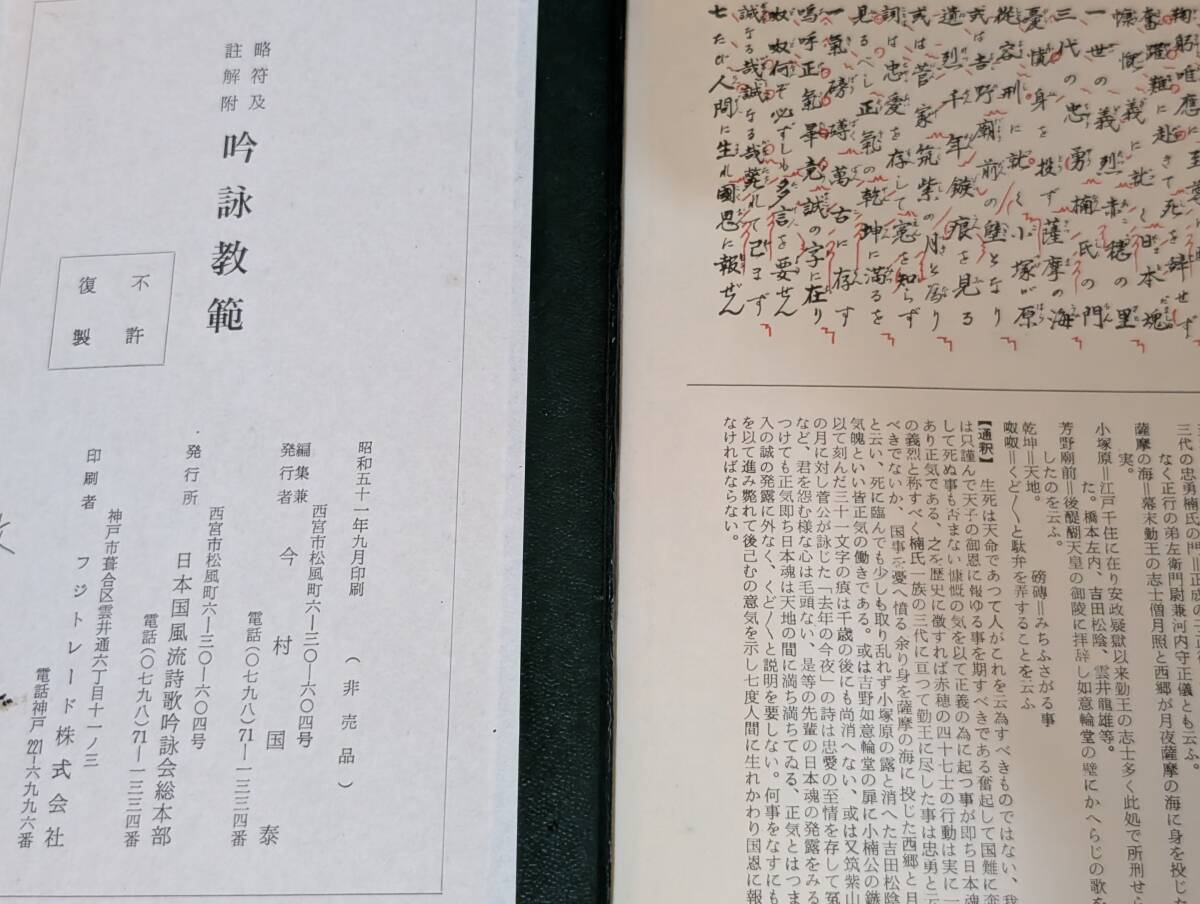 鞠躬唯應
奮躍難に赴きて死を辞せず
慷慨義に就く日本魂
一世の義烈赤穂の里
三代の忠勇楠氏の門
憂憤身を投ず薩摩の海
從容刑に就く小塚が原
或は吉野廟前の壁となり
遺烈千年鏃痕を見る
或は菅家筑紫の月と為り
詞は忠愛を存して寃を知らず
見るべし正氣の乾坤に満るを
一氣磅礴萬古に存す
嗚呼正氣畢竟誠の字に在り
呶呶何ぞ必ずしも多言を要せん
誠なる哉誠なる哉斃れて已まず
七たび人間に生れ國恩に報ぜん
三代の忠勇楠氏の門＝正成の
なく正行の弟左衛門尉兼河内守正儀とも云ふ。
薩摩の海＝幕末勤王の志士僧月照と西郷が月夜薩摩の海に身を投じた
実。
小塚原＝江戸千住に在り安政疑獄以来勤王の志士多く此処で所刑せら
た。橋本左内、吉田松陰、雲井龍雄等。
芳野廟前＝後醍醐天皇の御陵に拝辞し如意輪堂の壁にかへらじの歌を
したのを云ふ。
乾坤＝天地。　磅礴＝みちふさがる事
呶呶＝くど〳〵と駄弁を弄することを云ふ
【通釈】　生死は天命であつて人がこれを云為すべきものではない、我
は只謹んで天子の御恩に報ゆる事を期すべきである奮起して国難に赴
して死ぬ事も否まない慷慨の気を以て正義の為に起つ事が即ち日本魂
あり正気である、之を歴史に徴すれば赤穂の四十七士の行動は実に一
の義烈と称すべく楠氏一族の三代に亘つて勤王に尽した事は忠勇と云
べきでないか、国事を憂へ憤る余り身を薩摩の海に投じた西郷と月
と云い、死に臨んでも少しも取り乱れず小塚原の露と消へた吉田松陰
気魄といい皆正気の働きである。或は吉野如意輪堂の扉に小楠公の鏃
以て刻んだ三十一文字の痕は千歳の後にも尚消へない、或は又筑紫山
の月に対し菅公が詠じた「去年の今夜」の詩は忠愛の至情を存して寃
など、君を怨む様な心は毛頭ない、是等の先輩の日本魂の発露をみる
つけても正気即ち日本魂は天地の間に満ち満ちてゐる、正気とはつま
入の誠の発露に外なく、くど〳〵と説明を要しない。何事をなすにも
を以て進み斃れて後已むの意気を示し七度人間に生れかわり国恩に報
なければならない。
略符及
註解附
吟詠教範
不許
復製
昭和五十一年九月印刷
（非売品）
編集兼
発行者
西宮市松風町六―三〇―六〇四号
今村国泰
電話（〇七九八）71―一三三四番
発行所
西宮市松風町六―三〇―六〇四号
日本国風流詩歌吟詠会総本部
電話（〇七九八）71―一三三四番
印刷者
神戸市葺合区雲井通六丁目十一ノ三
フジトレード株式会社
電話神戸 221―六九九六番